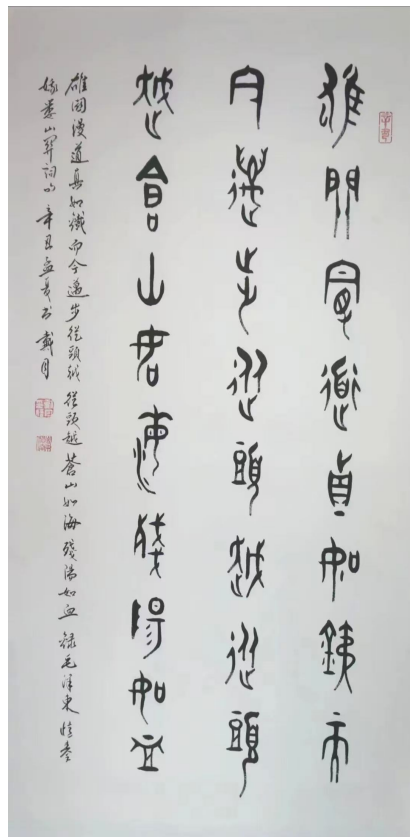 雄關漫道真如鐵而
今邁步從頭越從頭
越蒼山如海殘陽如血
雄關漫道真如鐵而今邁步從頭越從頭越蒼山如海殘陽如血錄毛澤東憶秦
娥婁山關詞句辛丑孟夏書戴月